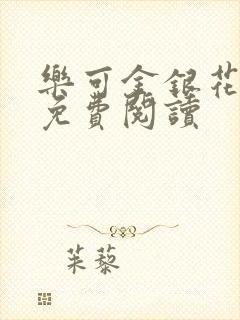 樂可金銀花
免費閱讀
茱藜